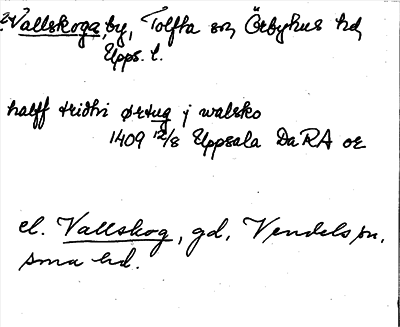 2. Vallskoga, by, Tolfta sn, Örbyhus hd,
Upps. l.
halff tridhi ørtug j walsko
1409 12/8 Uppsala DaRA or
el. Vallskog, gd, Vendels sn,
sma hd.